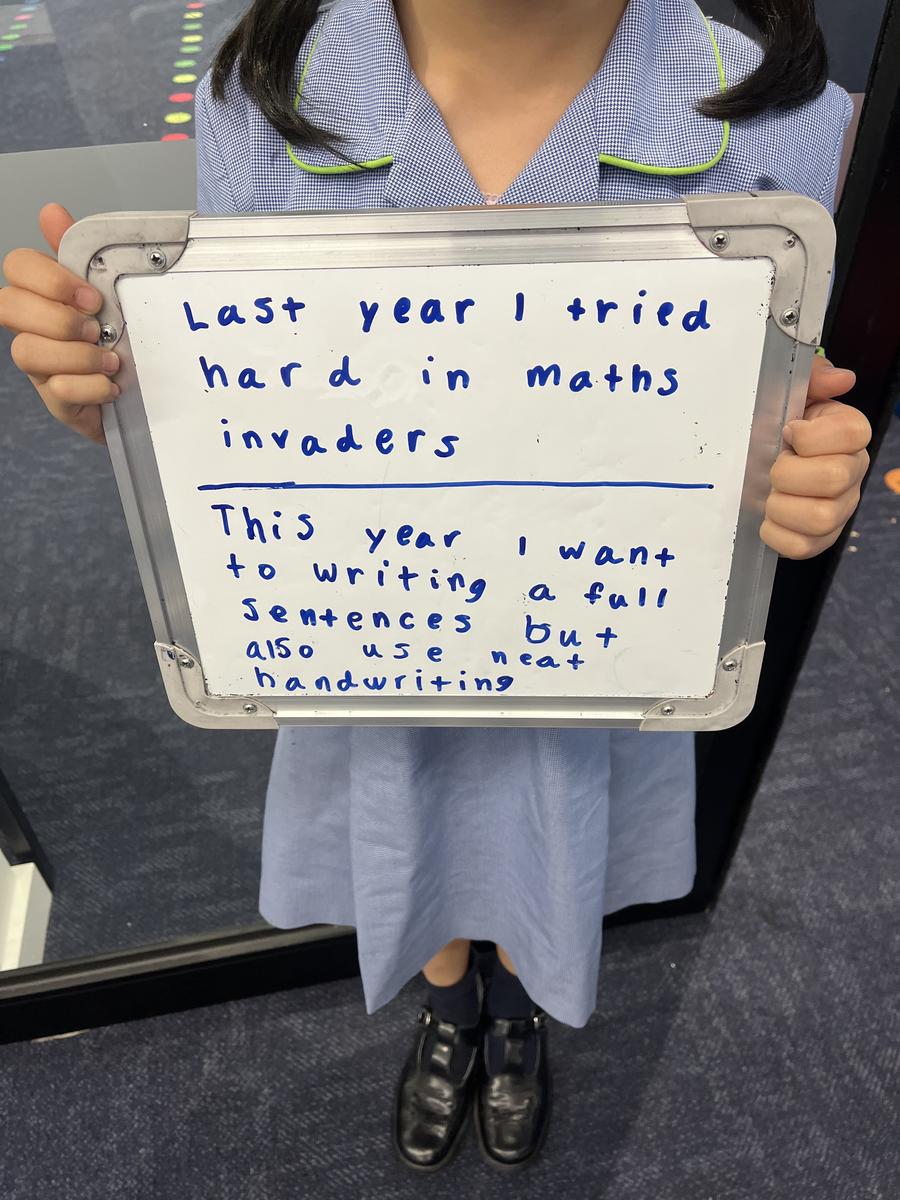 Last year I tried
hard in maths
invaders
This year I want
to writing a full
sentences but
also use neat
handwriting